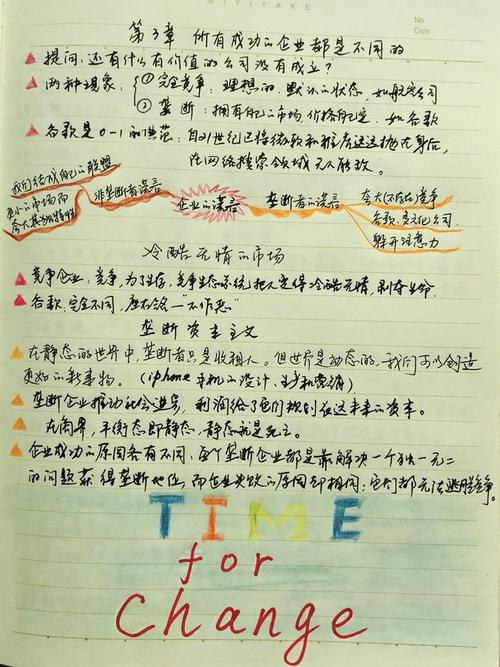 MIYIYAKE
No.
Date
第3章 所有成功的企业都是不同的
提问:还有什么有价值的公司没有成立?
两种现象:①完全竞争:理想的,默认的状态,如航空公司
②垄断:拥有自己的市场,价格自己定,如谷歌
谷歌是0-1的典范:自21世纪已将微软和雅虎远远抛在身后,
在网络搜索领域无人能敌。
非垄断者谎言 企业的谎言 垄断者的谎言
夸大(不存在)竞争
谷歌:多元化公司
躲开注意力
冷酷无情的市场
竞争企业:竞争,为了生存,竞争生态系统把人变得冷酷无情,剥夺生命.
谷歌:完全不同,座右铭—"不作恶"
垄断资本主义
在静态的世界中,垄断者只是收租人。但世界是动态的,我们可以创造
更好的新事物。(iphone手机的设计
垄断企业推动社会进步,利润给了它们规划长远未来的资本。
在商界,平衡态即静态,静态就是死亡。
企业成功的原因各有不同:每个垄断企业都是靠解决一个独一无二
的问题获得垄断地位,而企业失败的原因却相同:它们都无法逃脱竞争。
TIME
for
Change